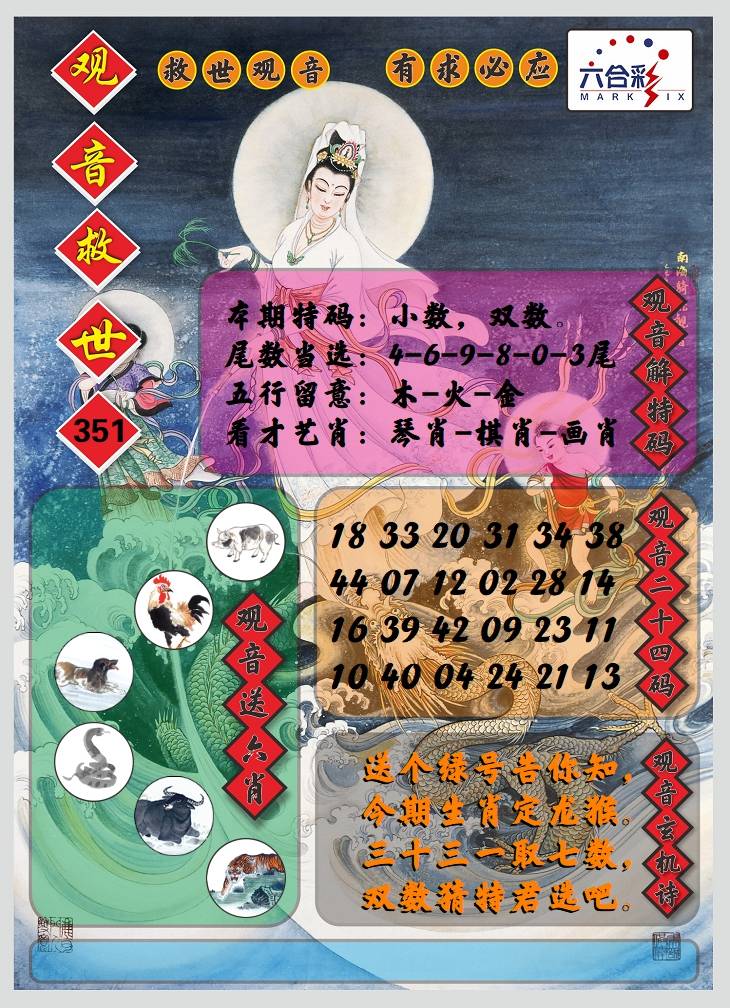 观音救世
351
救世观音 有求必应
六合彩
MARK SIX
南海
观音解特码
本期特码：小数，双数。
尾数当选：4-6-9-8-0-3尾
五行留意：木-火-金
看才艺肖：琴肖-棋肖-画肖
观音二十四码
18 33 20 31 34 38
44 07 12 02 28 14
16 39 42 09 23 11
10 40 04 24 21 13
观音送六肖
观音玄机诗
送个绿号告你知，
今期生肖定龙猴。
三十三一取七数，
双数猜特君选吧。